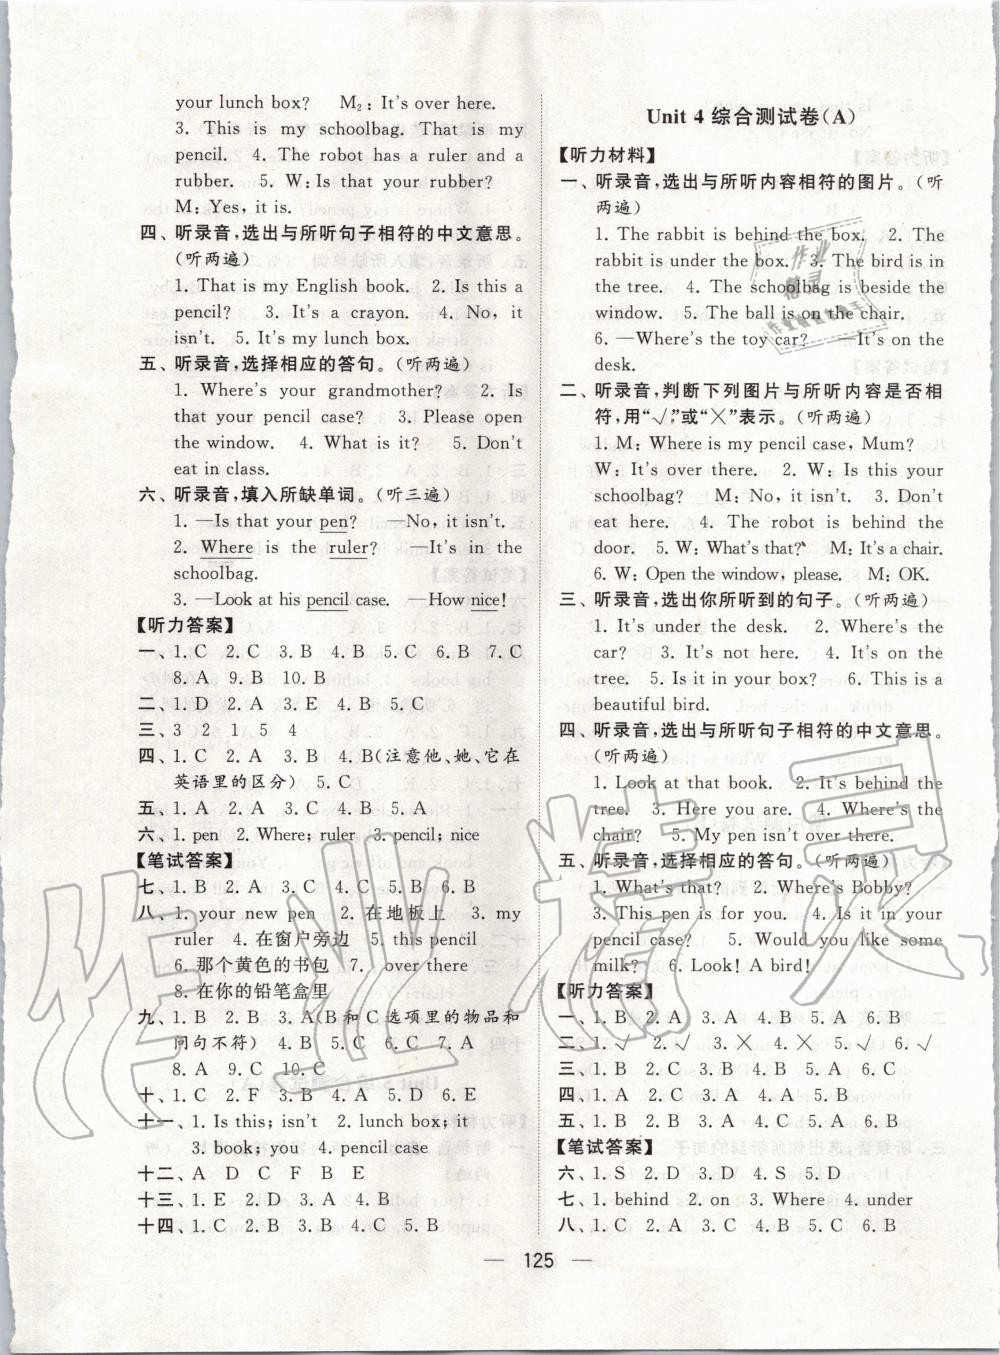 your lunch box?　M₂: It's over here.
3. This is my schoolbag. That is my
pencil.　4. The robot has a ruler and a
rubber.　5. W: Is that your rubber?
M: Yes, it is.
四、听录音,选出与所听句子相符的中文意思。
(听两遍)
1. That is my English book.　2. Is this a
pencil?　3. It's a crayon.　4. No, it
isn't.　5. It's my lunch box.
五、听录音,选择相应的答句。(听两遍)
1. Where's your grandmother?　2. Is
that your pencil case?　3. Please open
the window.　4. What is it?　5. Don't
eat in class.
六、听录音,填入所缺单词。(听三遍)
1. —Is that your pen?　—No, it isn't.
2. Where is the ruler?　—It's in the
schoolbag.
3. —Look at his pencil case.　—How nice!
【听力答案】
一、1. C　2. C　3. B　4. B　5. C　6. B　7. C
8. A　9. B　10. B
二、1. D　2. A　3. E　4. B　5. C
三、3　2　1　5　4
四、1. C　2. A　3. B　4. B(注意他、她、它在
英语里的区分)　5. C
五、1. A　2. A　3. C　4. B　5. A
六、1. pen　2. Where; ruler　3. pencil; nice
【笔试答案】
七、1. B　2. A　3. C　4. C　5. B　6. B
八、1. your new pen　2. 在地板上　3. my
ruler　4. 在窗户旁边　5. this pencil
6. 那个黄色的书包　7. over there
8. 在你的铅笔盒里
九、1. B　2. B　3. A(B 和 C 选项里的物品和
问句不符)　4. B　5. C　6. C　7. A
8. A　9. C　10. C
十、1. C　2. F　3. B　4. A　5. D　6. E
十一、1. Is this; isn't　2. lunch box; it
3. book; you　4. pencil case
十二、A　D　C　F　B　E
十三、1. E　2. D　3. C　4. A　5. B
十四、1. C　2. B　3. B　4. C　5. B
Unit 4 综合测试卷(A)
【听力材料】
一、听录音,选出与所听内容相符的图片。(听
两遍)
1. The rabbit is behind the box.　2. The
rabbit is under the box.　3. The bird is in
the tree.　4. The schoolbag is beside the
window.　5. The ball is on the chair.
6. —Where's the toy car?　—It's on the
desk.
二、听录音,判断下列图片与所听内容是否相
符,用“√”或“×”表示。(听两遍)
1. M: Where is my pencil case, Mum?
W: It's over there.　2. W: Is this your
schoolbag?　M: No, it isn't.　3. Don't
eat here.　4. The robot is behind the
door.　5. W: What's that?　M: It's a chair.
6. W: Open the window, please.　M: OK.
三、听录音,选出你所听到的句子。(听两遍)
1. It's under the desk.　2. Where's the
car?　3. It's not here.　4. It's on the
tree.　5. Is it in your box?　6. This is a
beautiful bird.
四、听录音,选出与所听句子相符的中文意思。
(听两遍)
1. Look at that book.　2. It's behind the
tree.　3. Here you are.　4. Where's the
chair?　5. My pen isn't over there.
五、听录音,选择相应的答句。(听两遍)
1. What's that?　2. Where's Bobby?
3. This pen is for you.　4. Is it in your
pencil case?　5. Would you like some
milk?　6. Look! A bird!
【听力答案】
一、1. B　2. A　3. A　4. B　5. A　6. B
二、1. √　2. √　3. ×　4. ×　5. √　6. √
三、1. B　2. B　3. A　4. A　5. A　6. B
四、1. C　2. C　3. A　4. A　5. B
五、1. B　2. B　3. A　4. B　5. A　6. B
【笔试答案】
六、1. S　2. D　3. D　4. S　5. D
七、1. behind　2. on　3. Where　4. under
八、1. C　2. A　3. C　4. B　5. C　6. B
— 125 —
作业精灵
作业
精灵